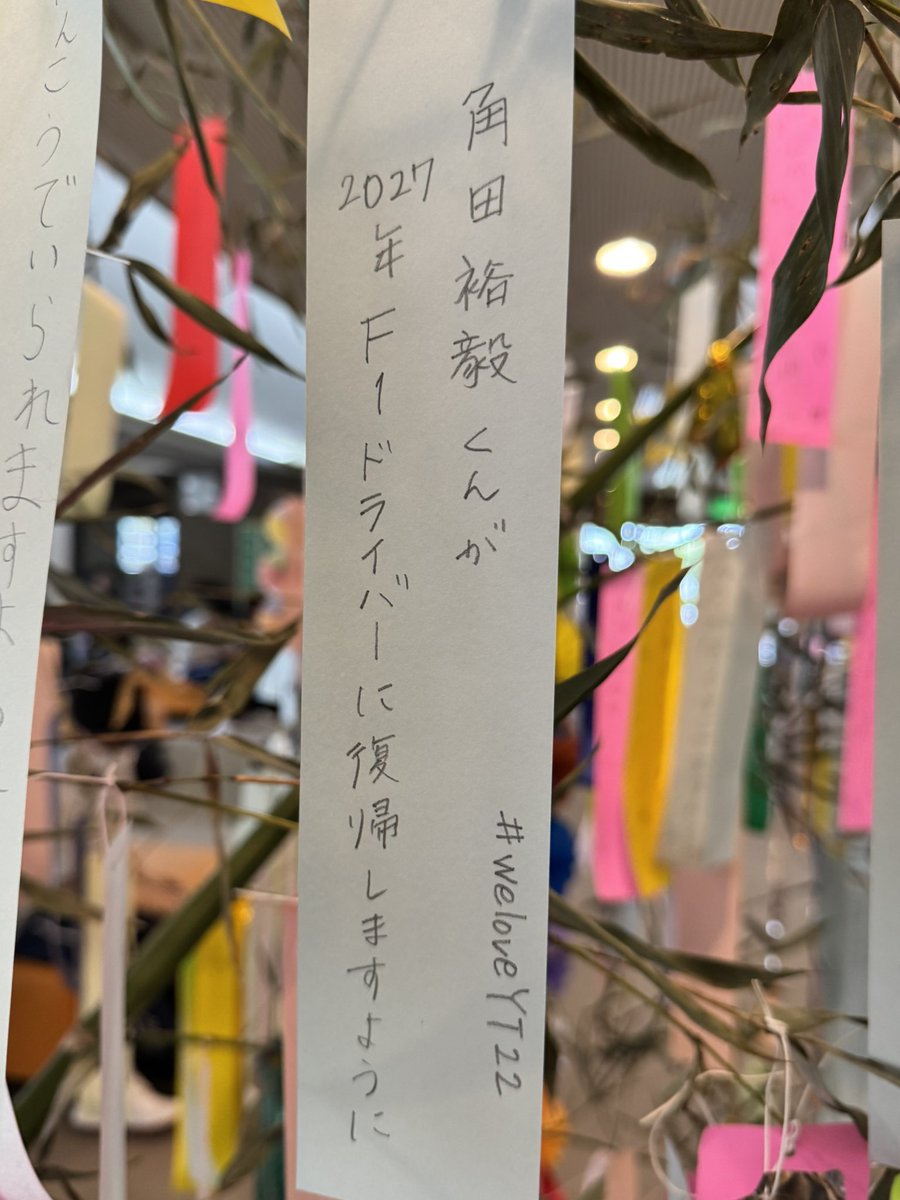 角田裕毅くんが
2027年F1ドライバーに復帰しますように
#weloveYT22
んこうでいられますよ